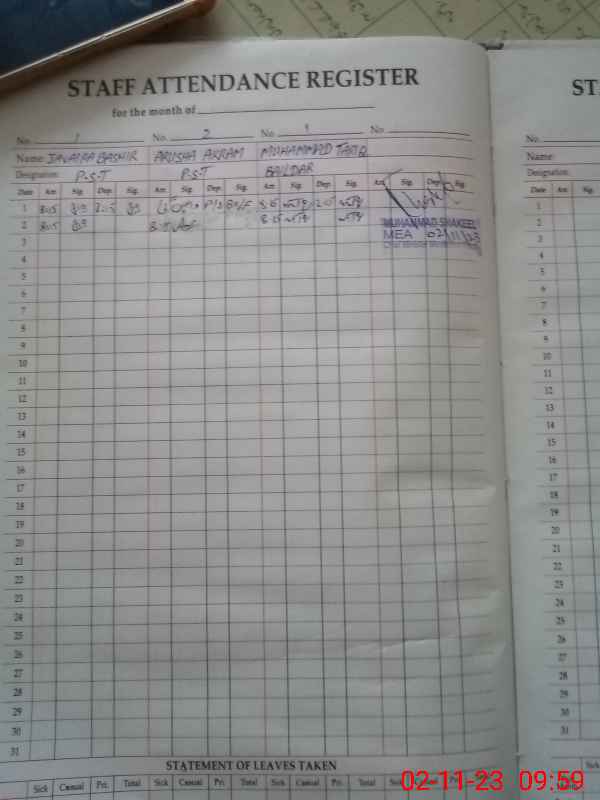 STAFF ATTENDANCE REGISTER
ST
for the month of
No. 1 No. 2 No. No.
No.
Name: JAVAIRA BASHIR ARUSHA AKRAM MUHAMMAD TARIQ
Name:
Designation: P.S.T P.S.T BAILDAR
Designation:
Date Arr. Sig. Dep. Sig. Arr. Sig. Dep. Sig. Arr. Sig. Dep. Sig. Arr. Sig. Dep. Sig.
Date Arr. Sig.
1 8:05
1
2 8:05 8:05
2
MUHAMMAD SHAKEEL
3
3
MEA 02/11/23
4
4
5
5
6
6
7
7
8
8
9
9
10
10
11
11
12
12
13
13
14
14
15
15
16
16
17
17
18
18
19
19
20
20
21
21
22
22
23
23
24
24
25
25
26
26
27
27
28
28
29
29
30
30
31
31
STATEMENT OF LEAVES TAKEN
Sick Casual Pri. Total Sick Casual Pri. Total Sick Casual Pri. Total Sick
02-11-23 09:59